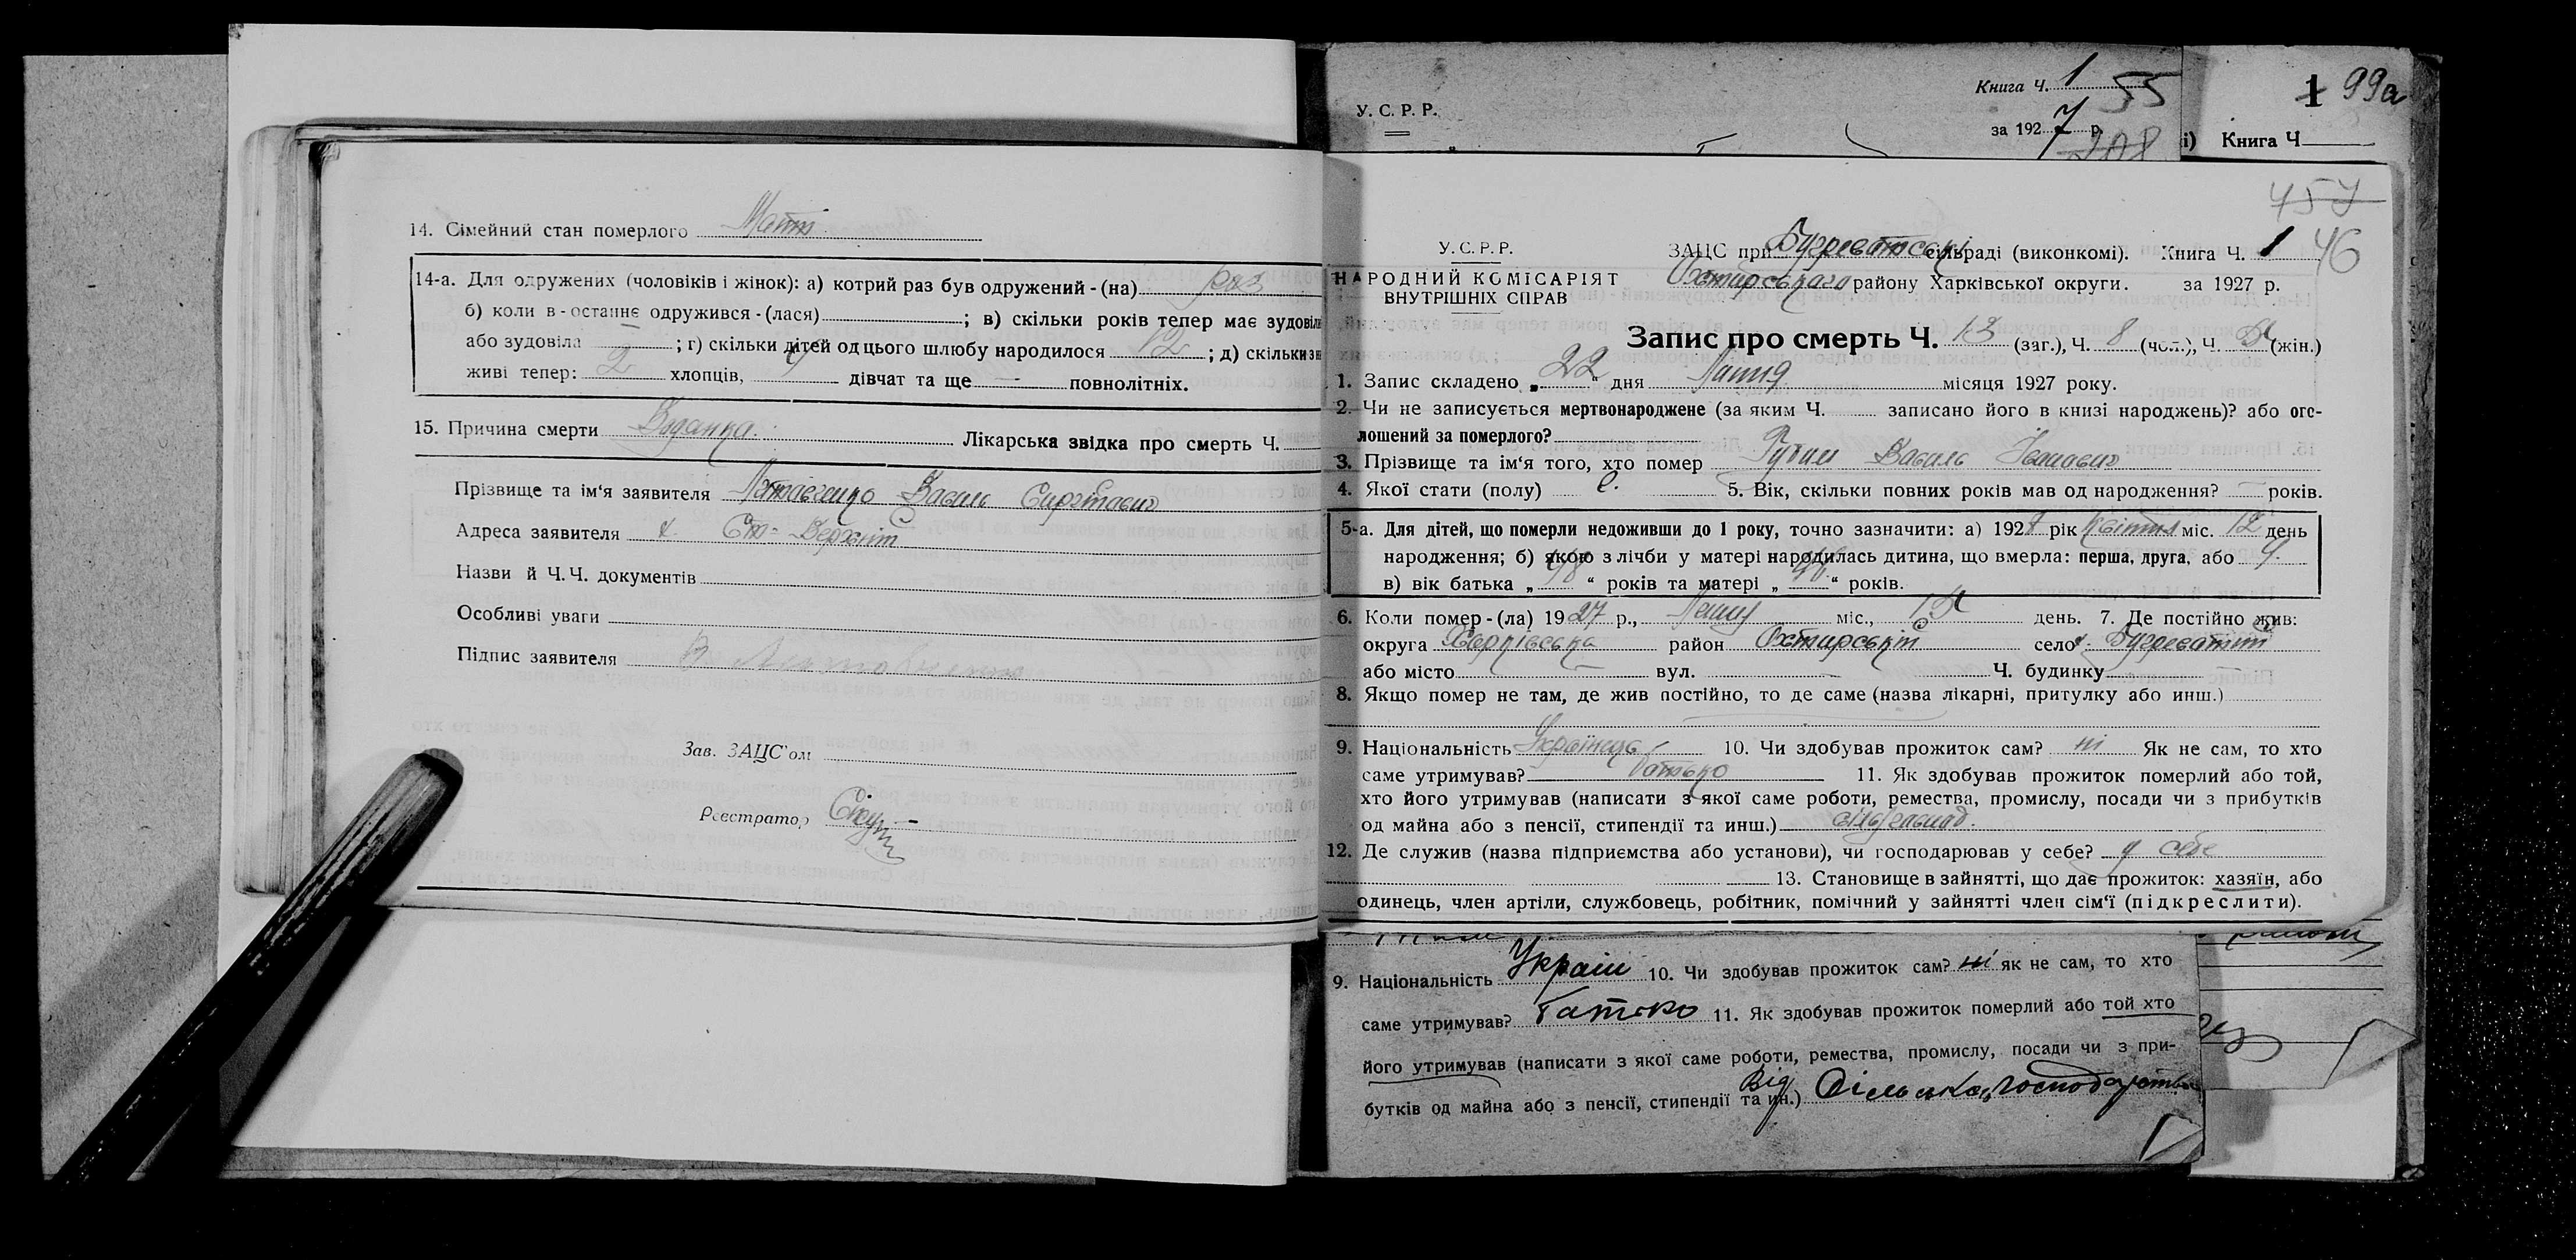 14. Сімейний стан померлого
14-а. Для одружених (чоловіків і жінок): а) котрий раз був одружений - (на) раз
б) коли в - останнє одружився - (лася) ; в) скільки років тепер має зудовіли
або зудовіла ; г) скільки дітей од цього шлюбу народилося 12 ; д) скільки з
живі тепер: 2 хлопців, дівчат та ще — повнолітніх.
15. Причина смерти Лікарська звідка про смерть Ч.
Прізвище та ім'я заявителя Василь
Адреса заявителя х.
Назви й Ч. Ч. документів
Особливі уваги
Підпис заявителя
Зав. ЗАЦС'ом
Реєстратор
Книга Ч. 1 55
У. С. Р. Р.
за 1927 р.
208
1 99а
і) Книга Ч
457
46
У. С. Р. Р. ЗАЦС при сільраді (виконкомі). Книга Ч. 1
НАРОДНИЙ КОМІСАРІЯТ району Харківської округи. за 1927 р.
ВНУТРІШНІХ СПРАВ
Запис про смерть Ч. 13 (заг.), Ч. 8 (чол.), Ч. (жін.)
1. Запис складено „ 22 " дня місяця 1927 року.
2. Чи не записується мертвонароджене (за яким Ч. записано його в книзі народжень)? або ого-
лошений за померлого?
3. Прізвище та ім'я того, хто помер Василь Іванович
4. Якої стати (полу) ч. 5. Вік, скільки повних років мав од народження? — років.
5-а. Для дітей, що померли недоживши до 1 року, точно зазначити: а) 192 рік квітня міс. 12 день
народження; б) якою з лічби у матері народилась дитина, що вмерла: перша, друга, або 9.
в) вік батька „ 48 " років та матері „ 46 " років.
6. Коли помер - (ла) 1927 р., міс., день. 7. Де постійно жив:
округа Харківська район Охтирський село
або місто — вул. — Ч. будинку —
8. Якщо помер не там, де жив постійно, то де саме (назва лікарні, притулку або инш.)
9. Національність Українець 10. Чи здобував прожиток сам? ні Як не сам, то хто
саме утримував? батько 11. Як здобував прожиток померлий або той,
хто його утримував (написати з якої саме роботи, ремества, промислу, посади чи з прибутків
од майна або з пенсії, стипендії та инш.)
12. Де служив (назва підприємства або установи), чи господарював у себе? у себе
13. Становище в зайнятті, що дає прожиток: хазяїн, або
одинець, член артіли, службовець, робітник, помічний у зайнятті член сім'ї (підкреслити).
9. Національність Україн 10. Чи здобував прожиток сам? ні як не сам, то хто
саме утримував? Батько 11. Як здобував прожиток померлий або той хто
його утримував (написати з якої саме роботи, ремества, промислу, посади чи з при-
бутків од майна або з пенсії, стипендії та ин.) Від Сільська господарства